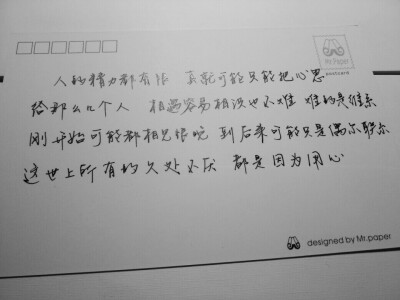 Mr.Paper
postcard
人的精力都有限 真就可能只能把心思
给那么几个人 相遇容易相识也不难 难的是维系
刚开始可能都相见恨晚 到后来可能只是偶尔联系
这世上所有的久处不厌 都是因为用心
designed by Mr.paper